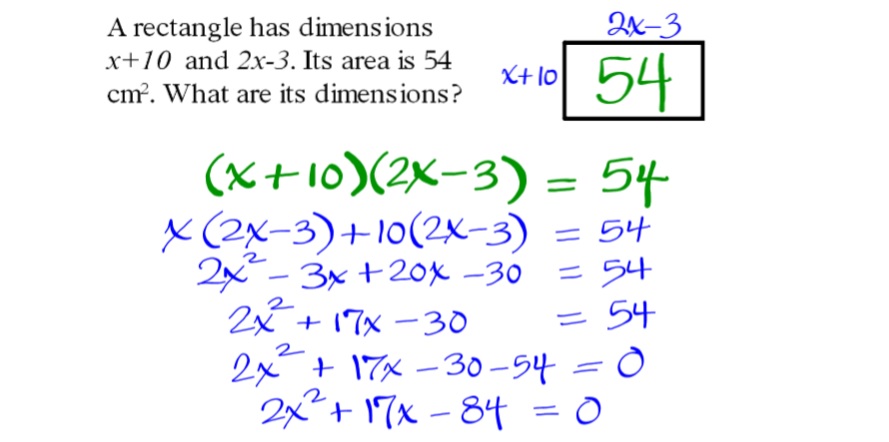 A rectangle has dimensions
x+10 and 2x-3. Its area is 54
cm². What are its dimensions?
2x-3
x+10
54
(x+10)(2x-3) = 54
x(2x-3)+10(2x-3) = 54
2x² - 3x + 20x - 30 = 54
2x² + 17x - 30 = 54
2x² + 17x - 30 - 54 = 0
2x² + 17x - 84 = 0